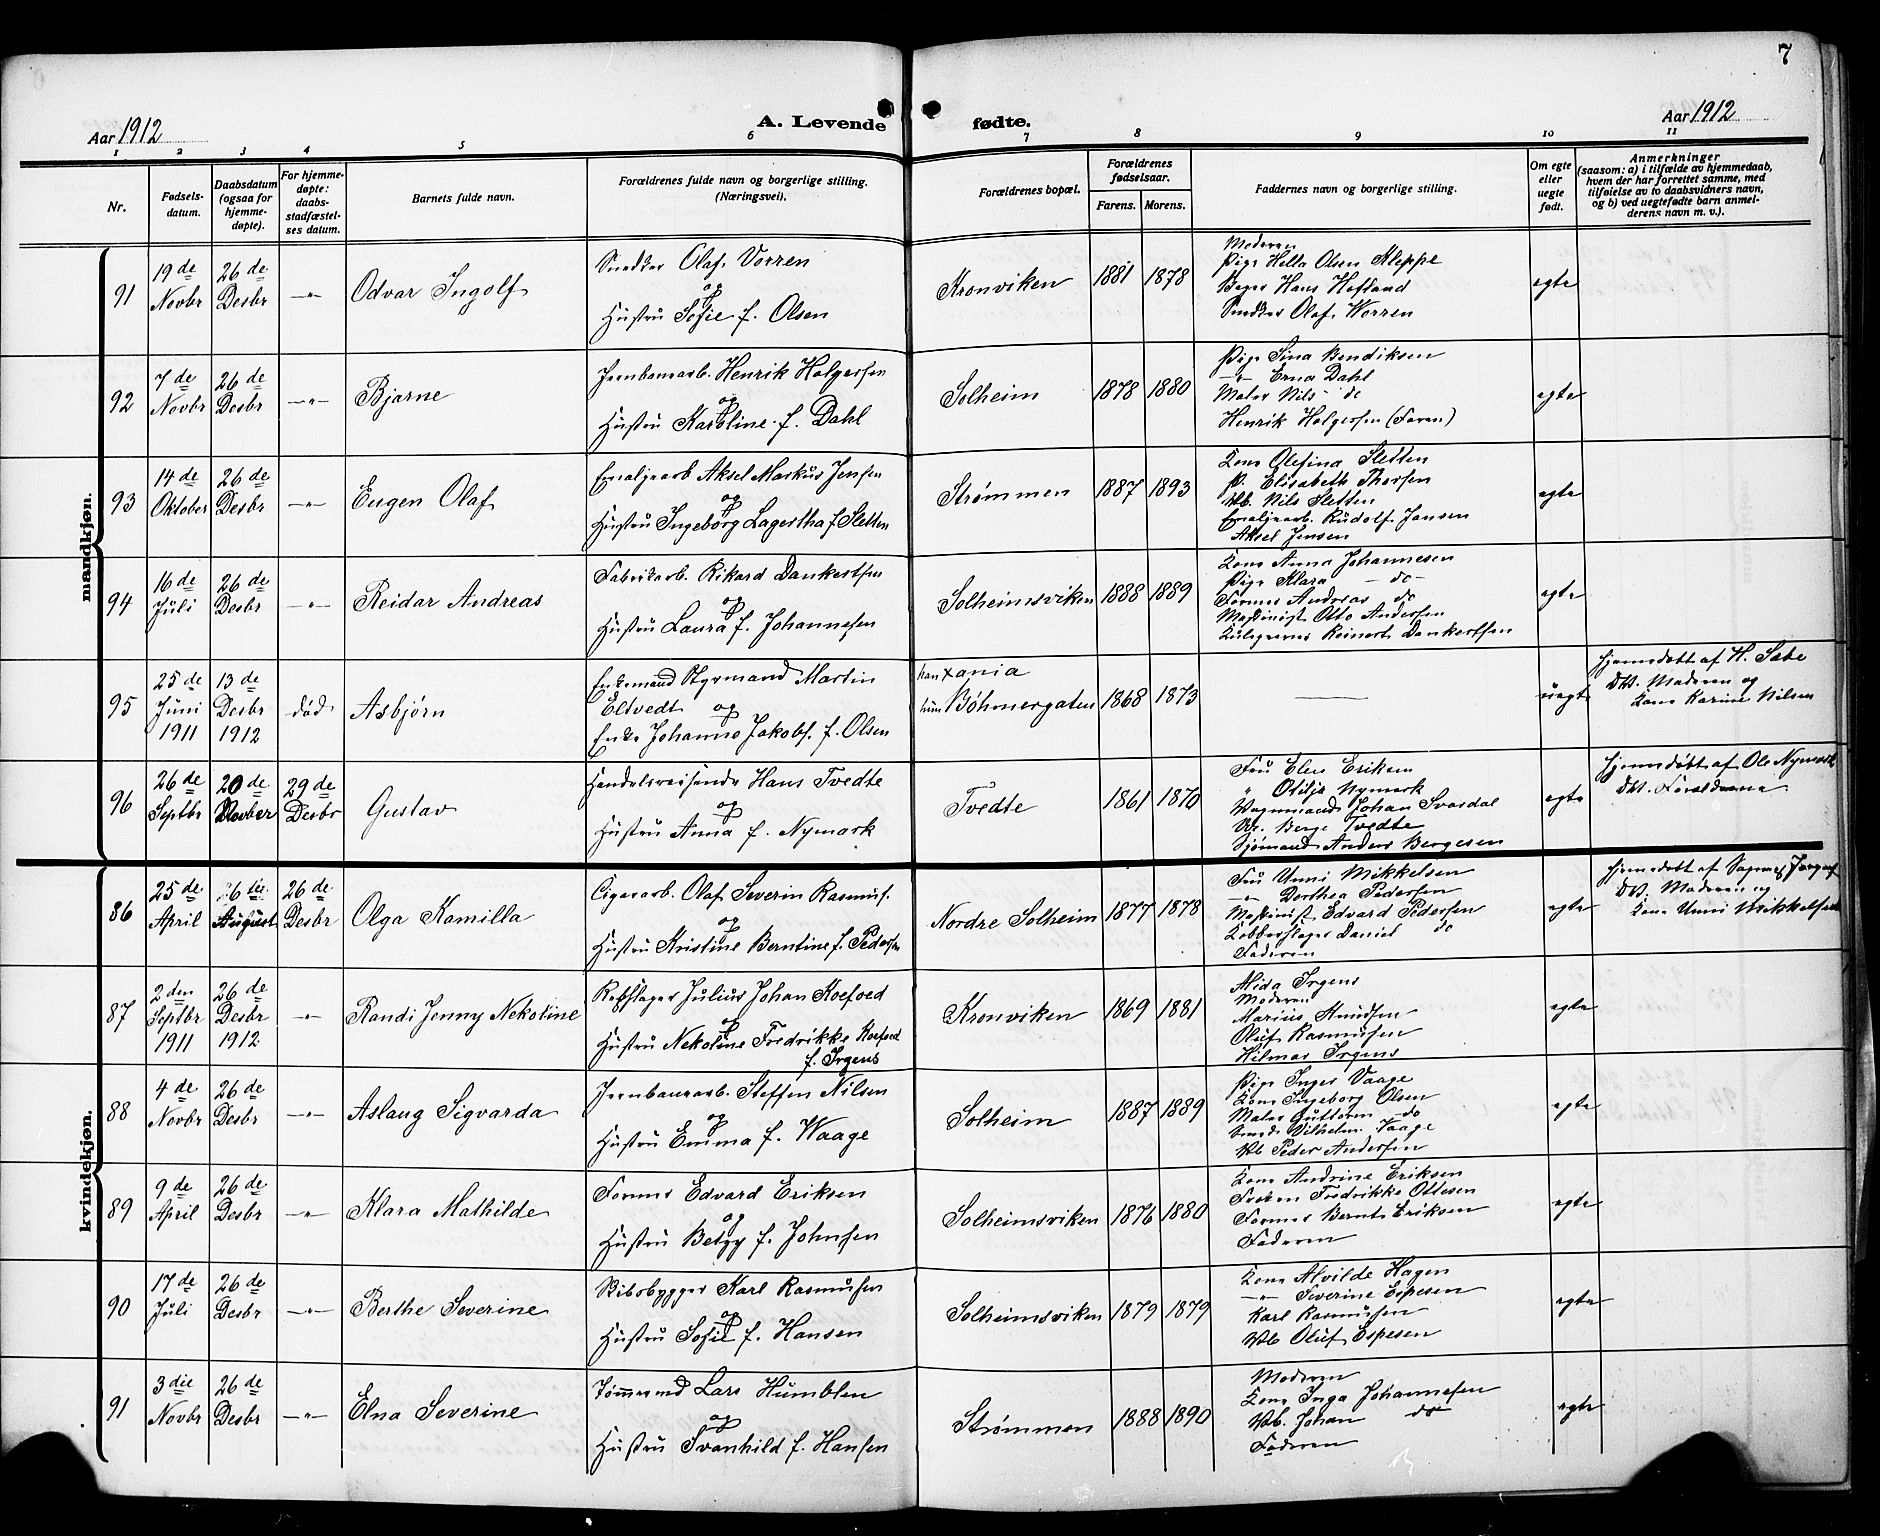 7
Aar 1912
A. Levende fødte.
Aar 1912
1 2 3 4 5 6 7 8 9 10 11
Nr.
Fødsels-
datum.
Daabsdatum
(ogsaa for
hjemme-
døpte).
For hjemme-
døpte:
daabs-
stadfæstel-
ses datum.
Barnets fulde navn.
Forældrenes fulde navn og borgerlige stilling.
(Næringsvei).
Forældrenes bopæl.
Forældrenes
fødselsaar.
Farens. Morens.
Faddernes navn og borgerlige stilling.
Om egte
eller
uegte
født.
Anmerkninger
(saasom: a) i tilfælde av hjemmedaab,
hvem der har forrettet samme, med
tilføielse av to daabsvidners navn,
og b) ved uegtefødte barn anmel-
derens navn m. v.).
mandkjøn.
91
19 de
Novbr
26 de
Desbr
—„—
Odvar Ingolf
Snedker Olaf Vorren
og
Hustru Sofie f. Olsen
Kronviken
1881 1878
Moderen
Pige Hilla Olsen Kleppe
Bager Hans Hofland
Snedker Olaf Worren
egte
92
7 de
Novbr
26 de
Desbr
—„—
Bjarne
Jernbanearb. Henrik Holgersen
og
Hustru Karoline f. Dahl
Solheim
1878 1880
Pige Sina Bendiksen
—„— Erna Dahl
Maler Nils do
Henrik Holgersen (Faren)
egte
93
14 de
Oktober
26 de
Desbr
—„—
Eugen Olaf
Emaljearb Aksel Markus Jensen
og
Hustru Ingeborg Lagertha f Sletten
Strømmen
1887 1893
Kone Olefina Sletten
P. Elisabeth Thorsen
Ub. Nils Sletten
Emaljearb. Rudolf Jansen
Aksel Jensen
egte
94
16 de
Juli
26 de
Desbr
—„—
Reidar Andreas
Fabrikarb. Rikard Dankertsen
og
Hustru Laura f. Johannesen
Solheimsviken
1888 1889
Kone Anna Johannesen
Pige Klara — do —
Former Andreas do
Maskinist Otto Andersen
Reinert Dankertsen
egte
95
25 de
Juni
1911
13 de
Desbr
1912
død
Asbjørn
Enkemand Styrmand Martin
Eltvedt og
Enke Johanne Jakobs. f. Olsen
han Xania
hun Böhmergaten
1868 1873
—
uegte
hjemedøbt af H. Sabe
DV. Moderen og
Kone Karine Nilsen
96
26 de
Septbr
20 de
Novber
29 de
Desbr
Gustav
Handelsreisende Hans Tvedte
og
Hustru Anna f. Nymark
Tvedte
1861 1870
Fru Elen Eriksen
„ Otilje Nymark
Vognmand Johan Svardal
Berge Tvedte
Sjømand Anders Bergesen
egte
hjemedøbt af Ole Nymark
DV. Forældrene
kvindekjøn.
86
25 de
April
August
26 de
Desbr
Olga Kamilla
Cigararb. Olaf Severin Rasmus.
og
Hustru Kristine Berntine f. Pedersen
Nordre Solheim
1877 1878
Fru Unni Mikkelsen
—„— Dorthea Pedersen
Maskinist Edvard Pedersen
Kobberslager Daniel do
Faderen
egte
hjemedøbt af
DV. Moderen og
Kone Unni Mikkelsen
87
2 den
Septbr
1911
26 de
Desbr
1912
—„—
Randi Jenny Nekoline
Rebslager Julius Johan Koefoed
og
Hustru Nekoline Fredrikke Koefoed
f. Irgens
Kronviken
1869 1881
Alida Irgens
Moderen
Marius Knudsen
Oluf Rasmusen
Hilmar Irgens
egte
88
4 de
Novbr
26 de
Desbr
—„—
Aslaug Sigvarda
Jernbanearb. Steffen Nilsen
og
Hustru Emma f. Waage
Solheim
1887 1889
Pige Inger Vaage
Kone Ingeborg Olsen
Maler Guttorm do
Smed Vilhelm Vaage
Ub Peder Andersen
egte
89
9 de
April
26 de
Desbr
—„—
Klara Mathilde
Former Edvard Eriksen
og
Hustru Betzy f. Johnsen
Solheimsviken
1876 1880
Kone Andrine Eriksen
Frøken Fredrikke Ottesen
Former Bernt Eriksen
Faderen
egte
90
17 de
Juli
26 de
Desbr
—„—
Berthe Severine
Skibsbygger Karl Rasmusen
og
Hustru Sofie f. Hansen
Solheimsviken
1879 1879
Kone Alvilde Hagen
—„— Severine Espesen
Karl Rasmusen
Ub Oluf Espesen
egte
91
3 die
Novbr
26 de
Desbr
—„—
Elna Severine
Tømmermd Lars Humblen
og
Hustru Svanhild f. Hansen
Strømmen
1888 1890
Moderen
Kone Inga Johannesen
Ub. Johan do
Faderen
egte